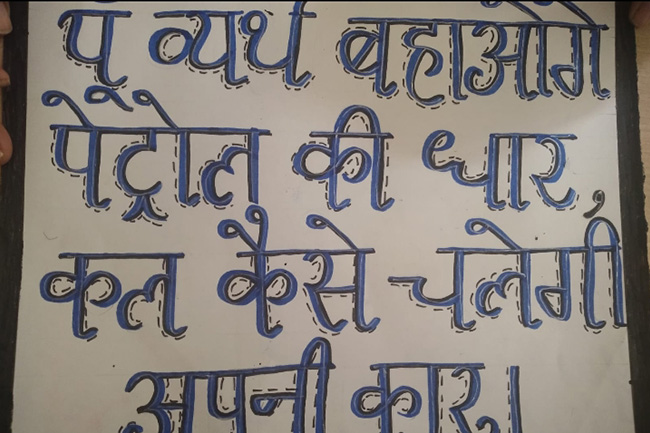 व्यर्थ बहाओगे
पेट्रोल की धार,
कल कैसे चलेगी
अपनी कार।